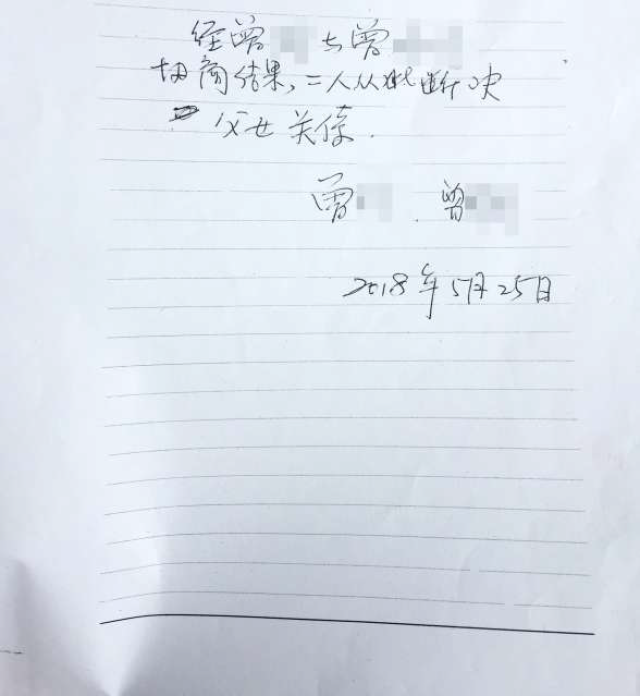 经曾 与曾
协商结果，二人从此断决
父女关系.
曾 . 曾
2018年5月25日